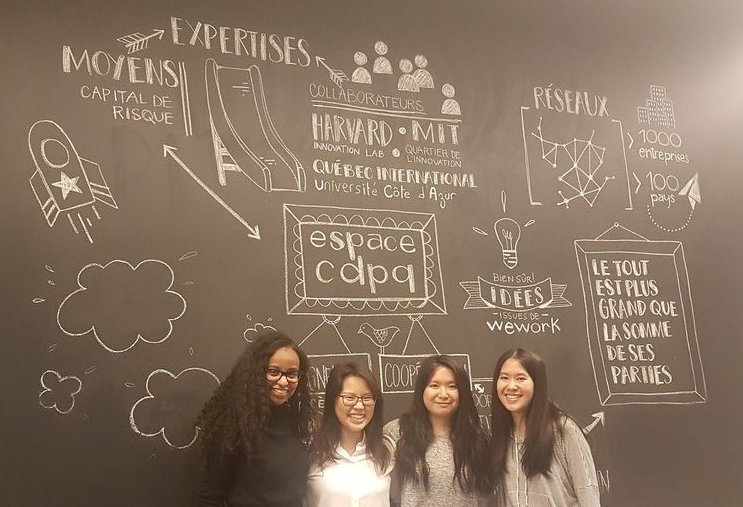 EXPERTISES
MOYENS
CAPITAL DE
RISQUE
COLLABORATEURS
HARVARD • MIT
INNOVATION LAB • QUARTIER DE
L'INNOVATION
QUÉBEC INTERNATIONAL
Université Côte d'Azur
RÉSEAUX
1000
entreprises
100
pays
espace
cdpq
BIEN SÛR!
IDÉES
ISSUES DE
wework
LE TOUT
EST PLUS
GRAND QUE
LA SOMME
DE SES
PARTIES